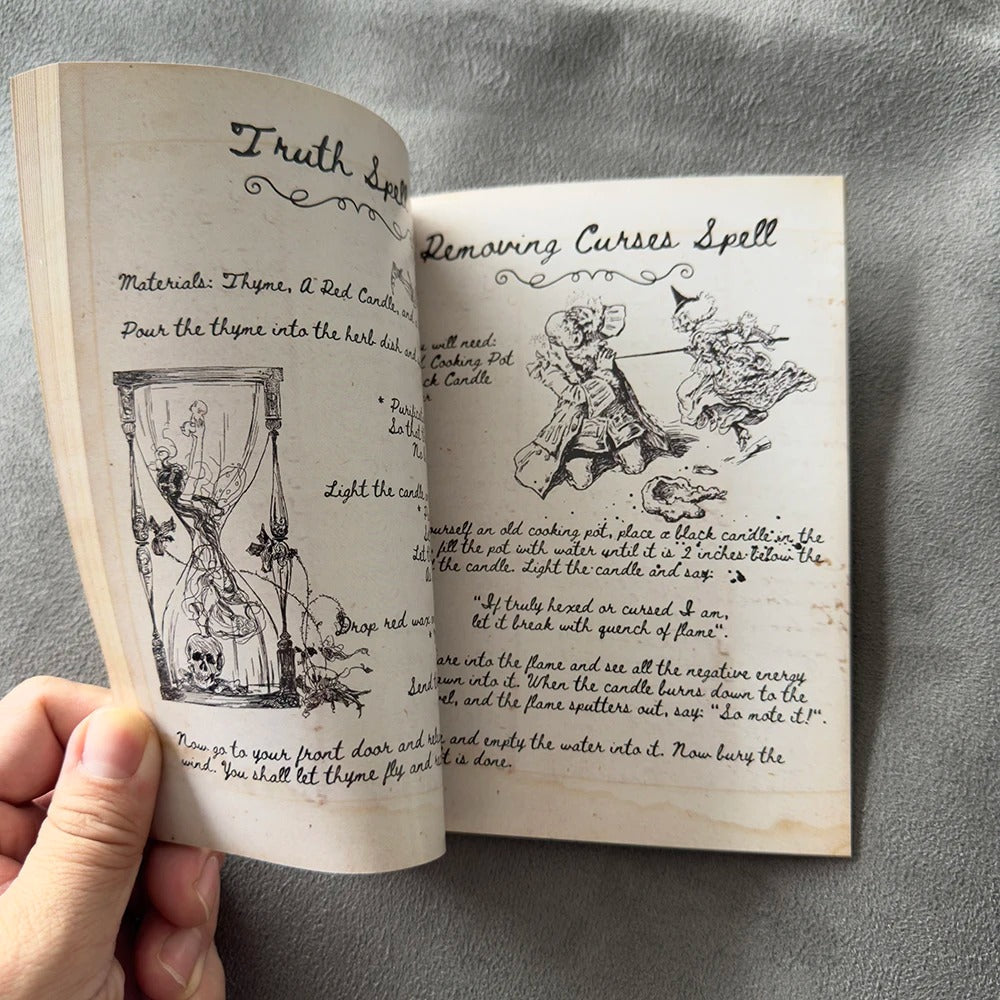 Truth Spell
Materials: Thyme, A Red Candle, and
Pour the thyme into the herb dish and
* 
So that
Light the candle
*
Let
Drop red wax
*
Send
Now go to your front door and
wind. You shall let thyme fly and
Removing Curses Spell
will need:
Cooking Pot
Candle
ourself an old cooking pot, place a black candle in the
fill the pot with water until it is 2 inches below the
the candle. Light the candle and say:
"If truly hexed or cursed I am,
let it break with quench of flame".
are into the flame and see all the negative energy
awn into it. When the candle burns down to the
vel, and the flame sputters out, say: "So mote it!".
and empty the water into it. Now bury the
it is done.